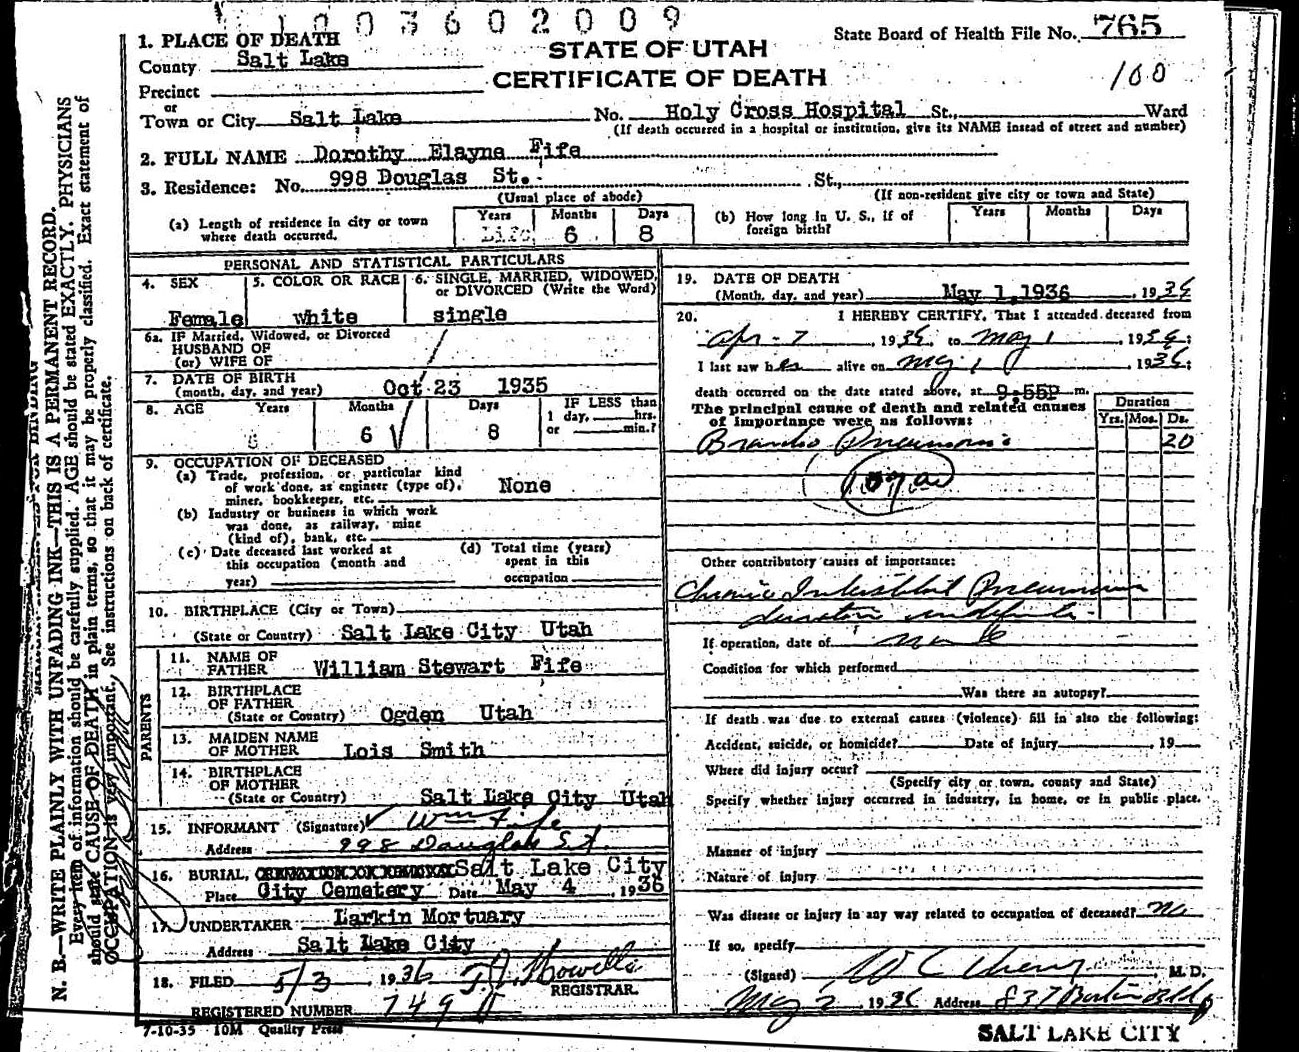 1003602009
State Board of Health File No. 765
1. PLACE OF DEATH
STATE OF UTAH
County Salt Lake
CERTIFICATE OF DEATH
100
Precinct
or
Town or City Salt Lake No. Holy Cross Hospital St., Ward
(If death occurred in a hospital or institution, give its NAME instead of street and number)
2. FULL NAME Dorothy Elayne Fife
3. Residence: No. 998 Douglas St. St.,
(Usual place of abode) (If non-resident give city or town and State)
(a) Length of residence in city or town where death occurred.
Years Months Days
Life 6 8
(b) How long in U. S., if of foreign birth?
Years Months Days
PERSONAL AND STATISTICAL PARTICULARS
4. SEX 5. COLOR OR RACE 6. SINGLE, MARRIED, WIDOWED, or DIVORCED (Write the Word)
Female white single
6a. IF Married, Widowed, or Divorced
HUSBAND OF
(or) WIFE OF
7. DATE OF BIRTH
(month, day, and year) Oct 23 1935
8. AGE Years Months Days IF LESS than
1 day, hrs.
or min.?
6 8
9. OCCUPATION OF DECEASED
(a) Trade, profession, or particular kind
of work done, as engineer (type of),
miner, bookkeeper, etc. None
(b) Industry or business in which work
was done, as railway, mine
(kind of), bank, etc.
(c) Date deceased last worked at
this occupation (month and
year)
(d) Total time (years)
spent in this
occupation
10. BIRTHPLACE (City or Town)
(State or Country) Salt Lake City Utah
PARENTS
11. NAME OF
FATHER William Stewart Fife
12. BIRTHPLACE
OF FATHER
(State or Country) Ogden Utah
13. MAIDEN NAME
OF MOTHER Lois Smith
14. BIRTHPLACE
OF MOTHER
(State or Country) Salt Lake City Utah
15. INFORMANT (Signature) Wm Fife
Address 998 Douglas St.
16. BURIAL, CREMATION OR REMOVAL Salt Lake City
Place City Cemetery Date May 4, 1936
17. UNDERTAKER Larkin Mortuary
Address Salt Lake City
18. FILED 5/3, 1936
REGISTRAR.
REGISTERED NUMBER 749
7-10-35 10M Quality Press
19. DATE OF DEATH
(Month, day, and year) May 1, 1936, 1936
20. I HEREBY CERTIFY, That I attended deceased from
Apr - 7, 1936, to May 1, 1936;
I last saw her alive on May 1, 1936;
death occurred on the date stated above, at 9:55P m.
The principal cause of death and related causes
of importance were as follows:
Duration
Yrs. Mos. Ds.
Broncho Pneumonia 20
Other contributory causes of importance:
Chronic Interstitial Pneumonia
duration indefinite
If operation, date of
Condition for which performed
Was there an autopsy?
If death was due to external causes (violence) fill in also the following:
Accident, suicide, or homicide? Date of injury, 19
Where did injury occur?
(Specify city or town, county and State)
Specify whether injury occurred in industry, in home, or in public place.
Manner of injury
Nature of injury
Was disease or injury in any way related to occupation of deceased? no
If so, specify
(Signed) M. D.
May 2 1936 Address 837 Boston Bldg
SALT LAKE CITY
N. B.—WRITE PLAINLY WITH UNFADING INK—THIS IS A PERMANENT RECORD.
Every item of information should be carefully supplied. AGE should be stated EXACTLY. PHYSICIANS
should state CAUSE OF DEATH in plain terms, so that it may be properly classified. Exact statement of
OCCUPATION is very important. See instructions on back of certificate.